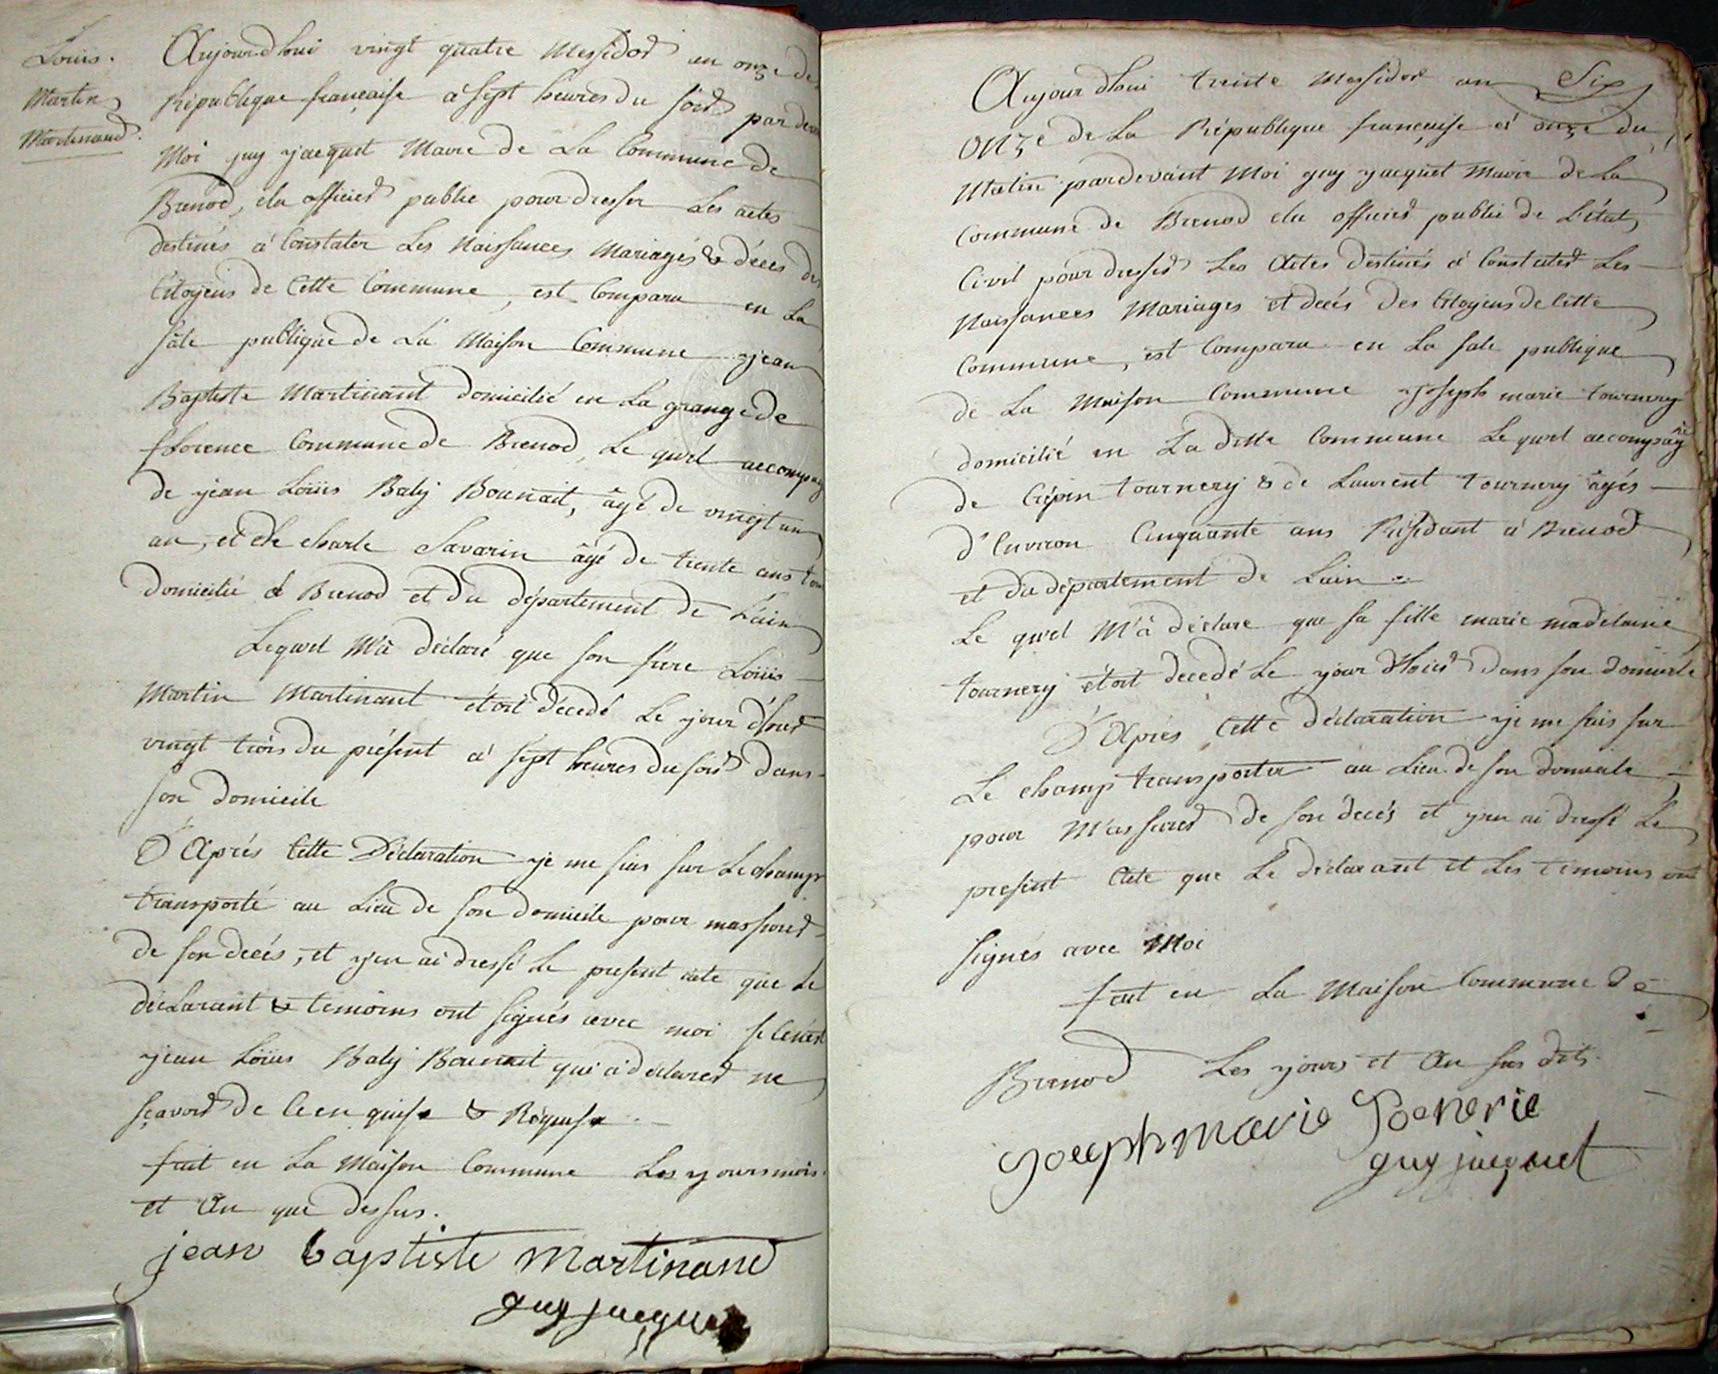 Loüis.
Martin
Martinand.
Aujourdhui vingt quatre Messidor an onze de
République française à sept heures du soir par devan
Moi guy yacquet Maire de La Commune de
Brenod, elu officier public pour dresser Les actes
destinés à Constater Les Naissances Mariages & décès des
Citoyens de Cette Commune, est Comparu en La
sale publique de La Maison Commune yean
Baptiste Martinant domicilié en La grange de
florence Commune de Brenod, Le quel accompag
de yean Loüis Baly Bounait, âgé de vingt un
an, et de charle Savarin âgé de trente ans tou
domicilié à Brenod et du département de L'ain
Lequel M'à déclaré que son frère Loüis
Martin Martinant étoit décedé Le your d'hier
vingt trois du présent à sept heures du soir dans
son domicile
D'Après Cette Déclaration ye me suis sur Le champ
transporté au Lieu de son domicile pour massurer
de son decés, et y'en ai dressé Le present acte que Le
déclarant & temoins ont signés avec moi si ce n'est
yean Loüis Baly Bounait qui à déclarer ne
sçavoir de ce enquise & Requise
fait en La Maison Commune Les yours mois
et An que dessus.
jean baptiste martinand
guy jacquet
Aujourdhui trente Messidor an Six
onze de La République française à onze du
Matin pardevant Moi guy yacquet Maire de La
Commune de Brenod elu officier public de L'état
Civil pour dresser Les Actes destinés à Constater Les
Naissances Mariages et decés des Citoyens de Cette
Commune, est Comparu en La sale publique
de La Maison Commune yoseph marie tournery
domicilié en La ditte Commune Le quel accompagné
de Crépin tournery & de Laurent tournery âgés
d'Environ Cinquante ans Résidant à Brenod
et du département de Lain
Le quel M'à déclare que sa fille marie madelaine
tournery étoit decedé Le your d'hier dans son domicile
D'Après Cette déclaration ye me suis sur
Le champ transporter au Lieu de son domicile
pour M'assurer de son decés et y'en ai dressé Le
present Acte que Le déclarant et Les temoins ont
signés avec Moi
fait en La Maison Commune de
Brenod Les yours et An sus dits.
Joseph marie Toenerie
guy jacquet